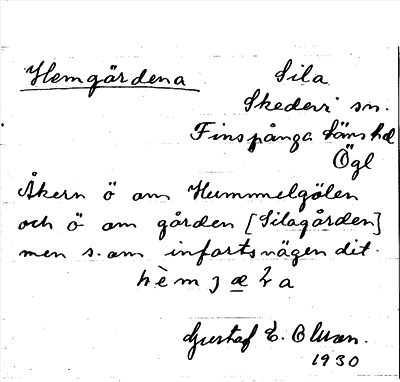 Hemgärdena
Sila
Skedevi sn.
Finspånga läns hd
Ögl
Åkern ö om Hummelgölen
och ö om gården [Silagården]
men s. om infartsvägen dit.
Gustaf E. Olsson.
1930